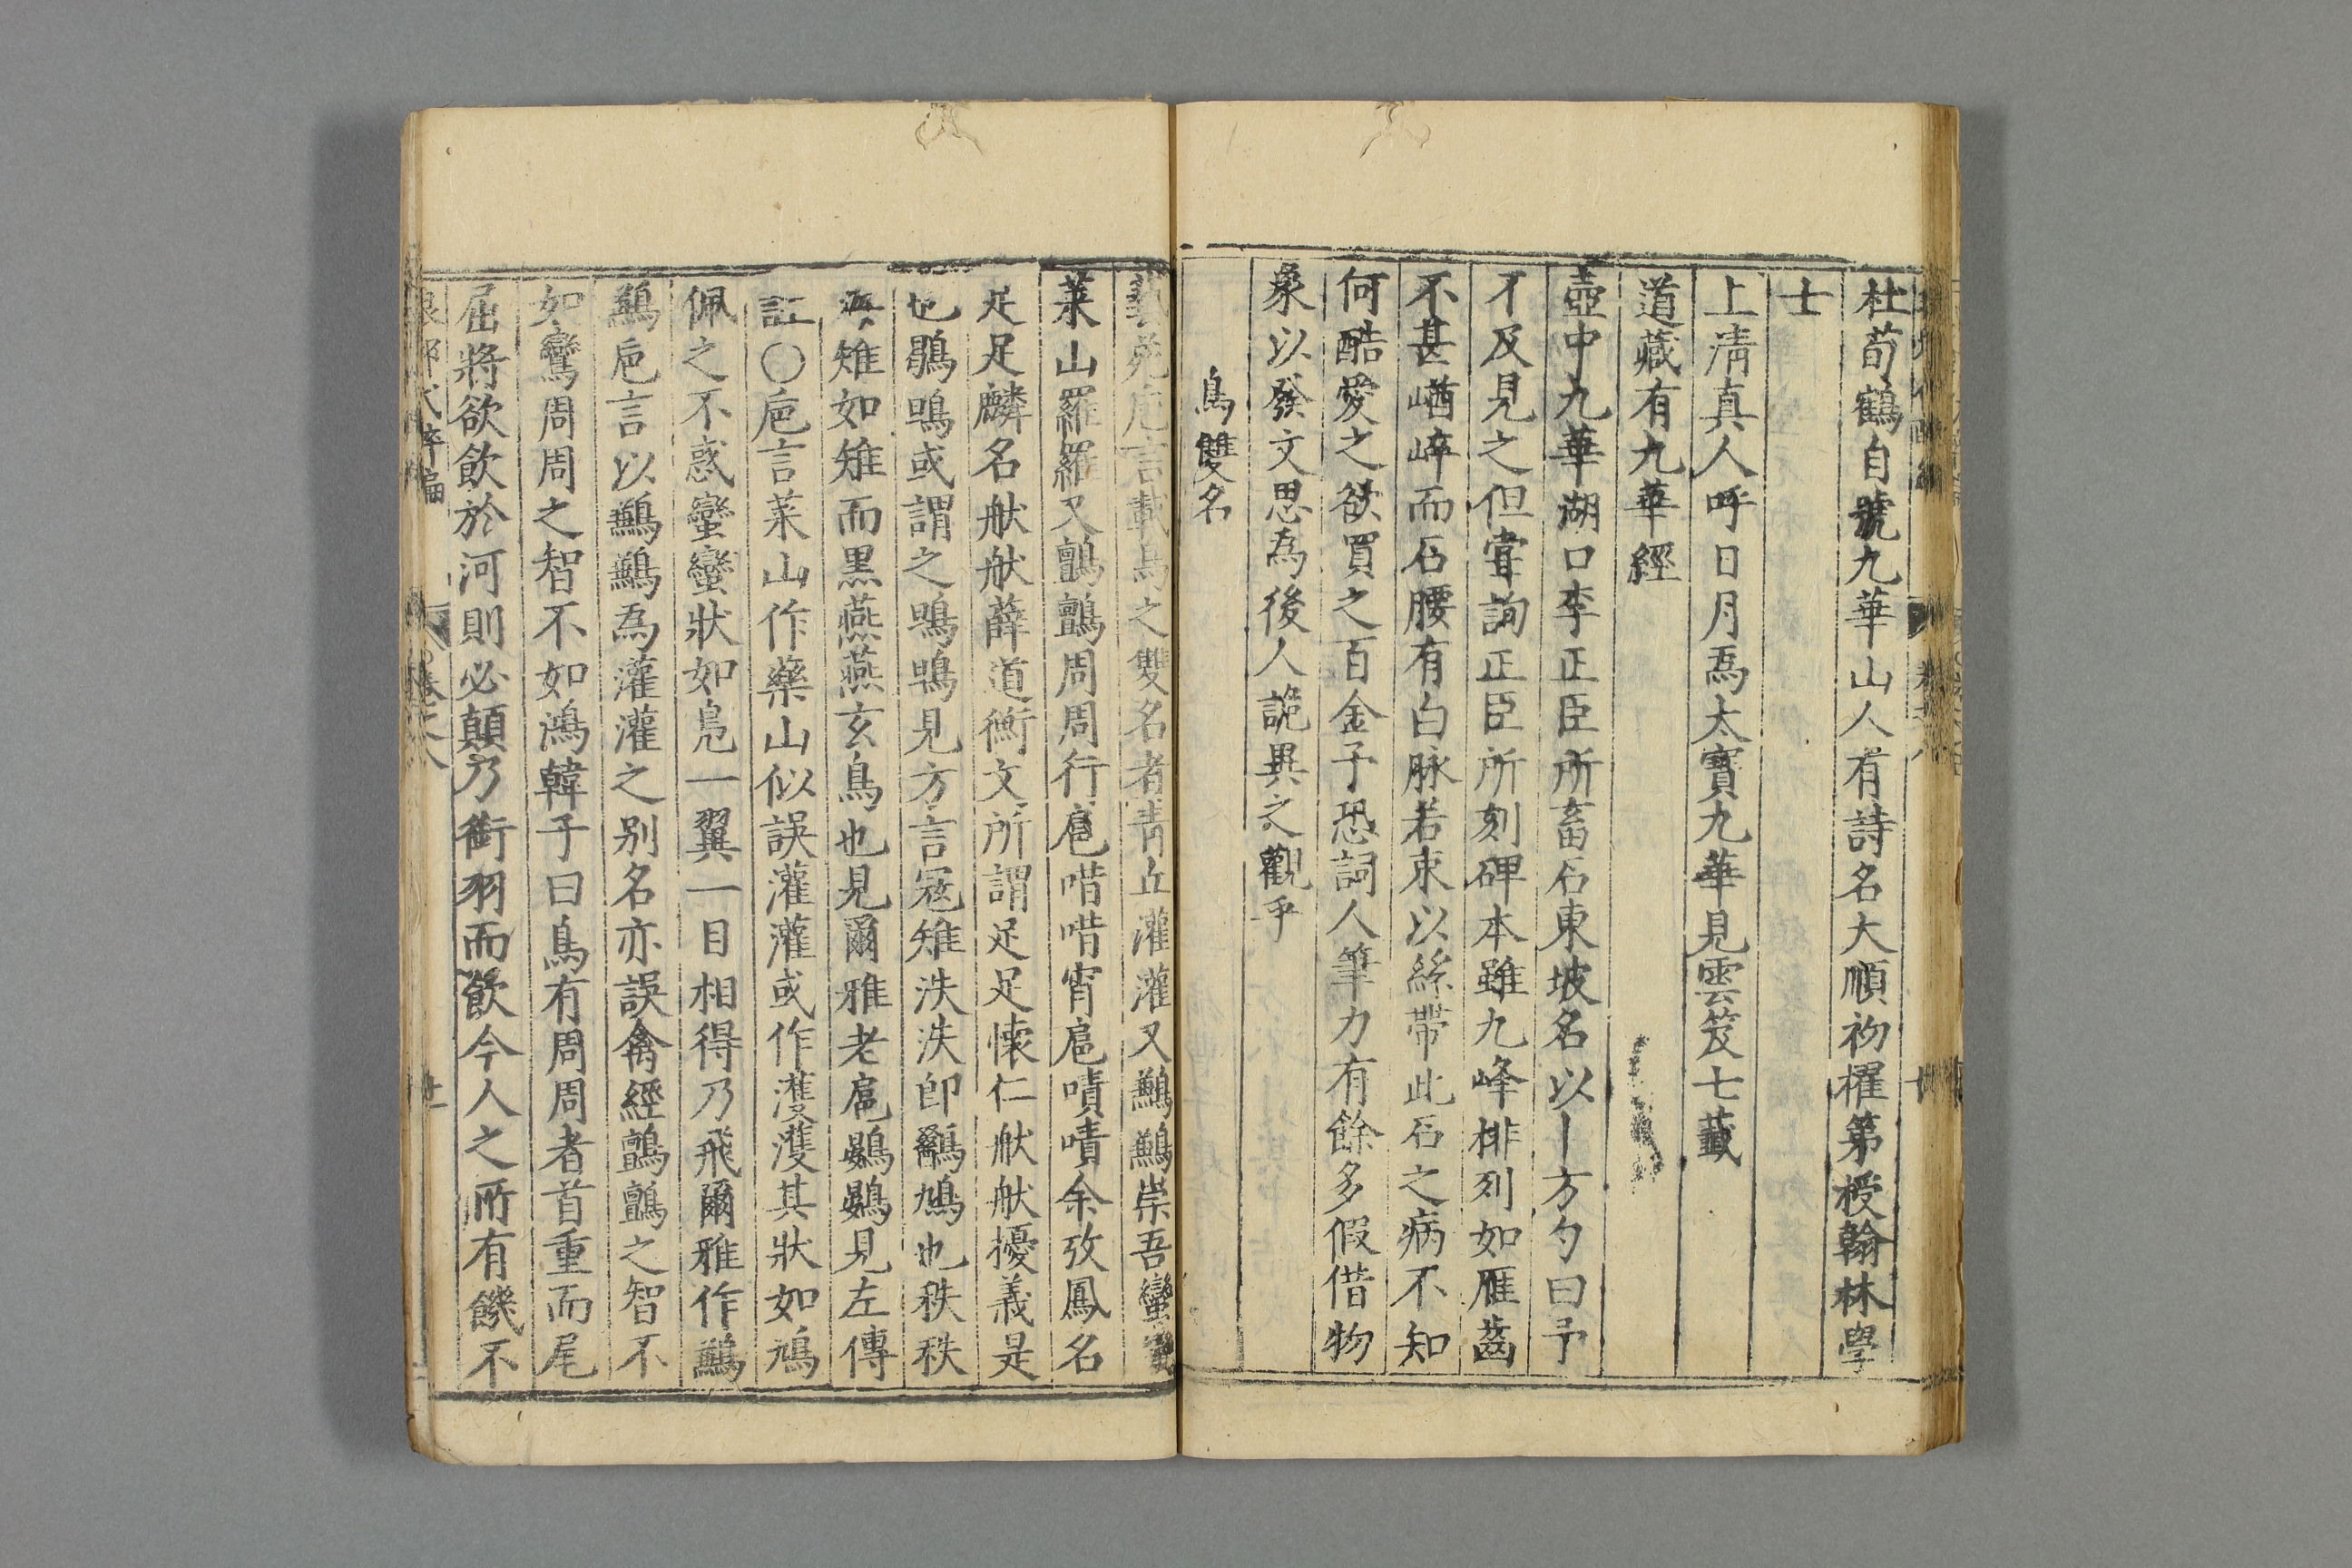 杜荀鶴自號九華山人有詩名大順初擢第授翰林學
士
上清真人呼日月爲太寶九華見雲笈七籖
道藏有九華經
壺中九華湖口李正臣所畜石東坡名以丨方勺曰予
不及見之但甞詢正臣所刻碑本雖九峰排列如雁齒
不甚崷崒而石腰有白脉若束以絲帶此石之病不知
何酷愛之欲買之百金予恐詞人筆力有餘多假借物
象以發文思爲後人詭異之觀乎
鳥雙名
藝苑巵言載鳥之雙名者青丘灌灌又鷫鷫崇吾蠻蠻
萊山羅羅又鸓鸓周周行扈唶唶宵扈嘖嘖余攷鳳名
足足麟名猷猷薛道衡文所謂足足懷仁猷猷擾義是
也鶻鳴或謂之鳴鳴見方言冦雉泆泆卽鷭鳩也秩秩
海雉如雉而黑燕燕玄鳥也見爾雅老扈鷃鷃見左傳
註〇巵言萊山作藥山似誤灌灌或作濩濩其狀如鳩
佩之不惑蠻蠻狀如鳬一翼一目相得乃飛爾雅作鶼
鶼巵言以鷫鷫爲灌灌之别名亦誤禽經鸓鸓之智不
如鸞周周之智不如鴻韓子曰鳥有周周者首重而尾
屈將欲飲於河則必顛乃銜羽而飲今人之所有饑不